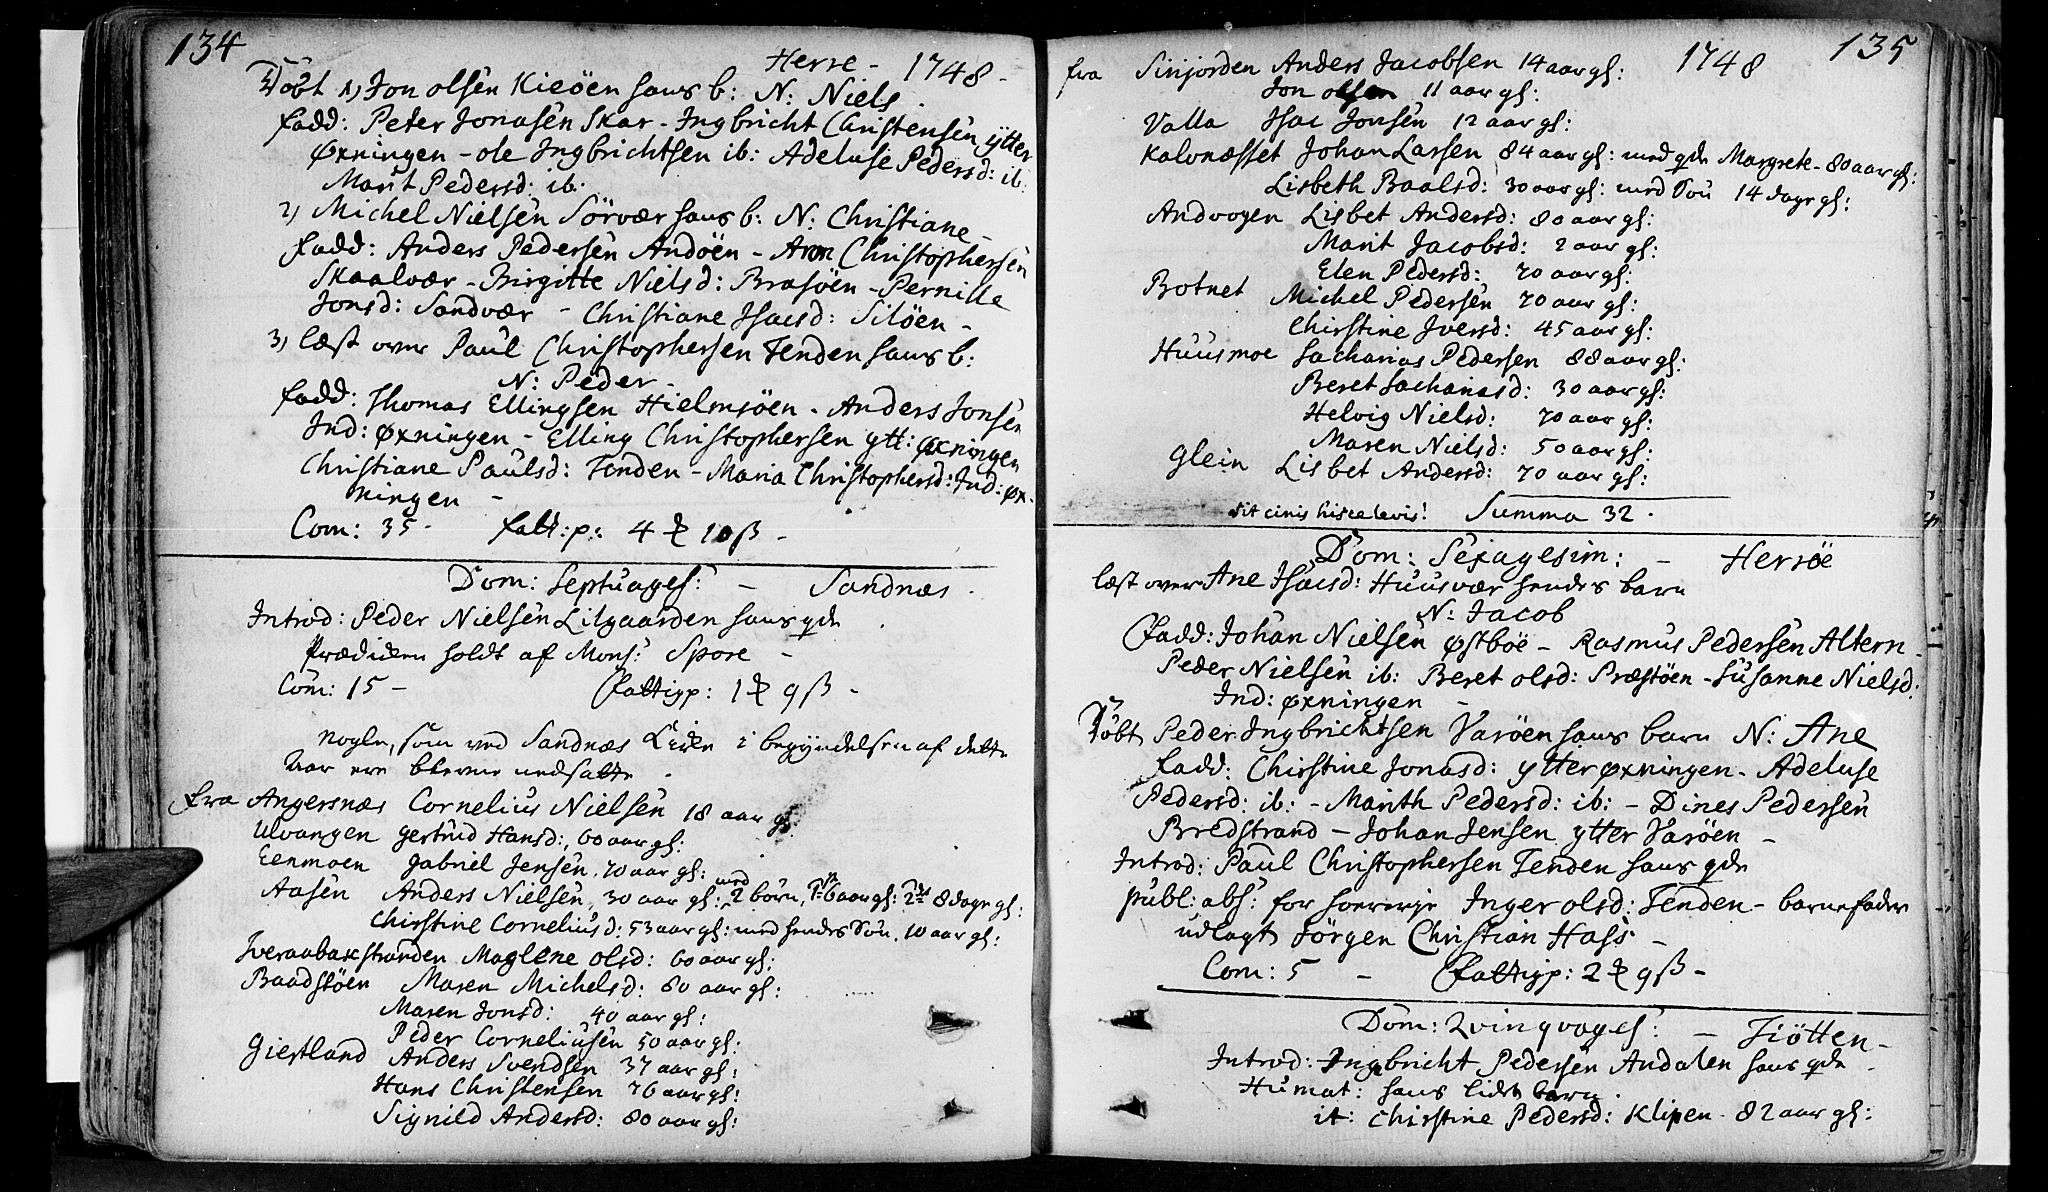 134
Herrø - 1748 -
Døbt 1) Jon olsen Kieøen hans b: N: Niels.
fadd: Peter Jonasen Skar - Ingbricht Christensen ytter
øxningen - ole Ingbrichtsen ib: Adeluse Pedersd: ib:
Marit Pedersd: ib.
2) Michel Nielsen Sörvær hans b: N: Christiane -
fadd: Anders Pedersen Andöen - Aron Christophersen
Skaalvær - Birgitte Nielsd: Brasöen - Pernille
Jonsd: Sandvær - Christiane Isacsd: Silöen -
3) læst over Paul Christophersen Tenden hans b:
N: Peder -
fadd: Thomas Ellingsen Hielmsöen - Anders Jonsen
Ind: øxningen - Elling Christophersen ytt: øxningen
Christiane Paulsd: Tenden - Maria Christophersd: Ind: øx-
ningen -
Com: 35 - fatt: p: 4 ℔ 10 β -
Dom: Septuages: - Sandnæs.
Introd: Peder Nielsen Lilgaarden hans qde
Prædiken holdt af Mons: Spore -
Com: 15 - fattigp: 1 ℔ 9 β -
Nogle, som ved Sandnæs Kirke i begyndelsen af dette
Aar ere blevne nedsatte.
fra Angersnæs Cornelius Nielsen 18 aar gl:
Ulvangen Gertrud Hansd: 60 aar gl:
Eenmoen Gabriel Jensen, 70 aar gl:
Aasen Anders Nielsen, 30 aar gl: med 2 börn, 1st 6 aar gl: 2det 8 dage gl:
Chirstine Corneliusd: 53 aar gl: med hendes Sön, 10 aar gl:
Tveraabakstranden Maglene olsd: 60 aar gl:
Baadstöen Maren Michelsd: 80 aar gl:
Maren Jonsd: 40 aar gl:
Peder Corneliusen 50 aar gl:
Giestland Anders Svendsen 37 aar gl:
Hans Christensen 76 aar gl:
Signild Andersd: 80 aar gl:
1748 135
fra Sinjorden Anders Jacobsen 14 aar gl:
Jon olsen 11 aar gl:
Valla Isac Jonsen 12 aar gl:
Kalvnæsset Johan Larsen 84 aar gl: med qde Margrete - 80 aar gl:
Lisbeth Baalsd: 30 aar gl: med Sön 14 dage gl:
Andvogen Lisbet Andersd: 80 aar gl:
Marit Jacobsd: 2 aar gl:
Elen Pedersd: 70 aar gl:
Botnet Michel Pedersen 70 aar gl:
Chirstine Iversd: 45 aar gl:
Huusmoe Sacharias Pedersen 88 aar gl:
Beret Sachariasd: 30 aar gl:
Helvig Nielsd: 70 aar gl:
Maren Nielsd: 50 aar gl:
Glein Lisbet Andersd: 70 aar gl:
sit cinis hisce levis! Summa 32.
Dom: Sexagesim: - Herröe
læst over Ane Isacsd: Huusvær hendes barn
N: Jacob
fadd: Johan Nielsen Østböe - Rasmus Pedersen Altern -
Peder Nielsen ib: Beret olsd: Præstöen - Susanne Nielsd:
Ind: øxningen -
Döbt Peder Ingbrichtsen Varöen hans barn N: Ane
fadd: Chirstine Jonasd: ytter øxningen - Adeluse
Pedersd: ib: - Marith Pedersd: ib: - Dines Pedersen
Bredstrand - Johan Jensen ytter Varöen -
Introd: Paul Christophersen Tenden hans qde
publ: abs: for horerie Inger olsd: Tenden - barnefader
udlagt Jörgen Christian Hass -
Com: 5 - fattigp: 2 ℔ 9 β -
Dom: Qvinqvages: - Tiötten -
Introd: Ingbricht Pedersen Andalen hans qde
Humat: hans lidet barn.
it: Chirstine Pedersd: Klipen - 82 aar gl: